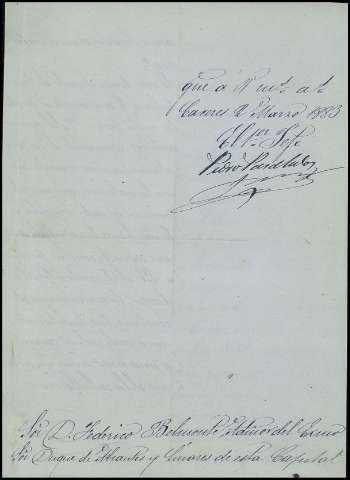 que á V. m.s a.s
Caceres 2 Marzo 1883
El 1.er Jefe
Pedro
Sór D. Federico Belmonte Admor del Exmo
Sór Duque de Abrantes y Linares de esta Capital